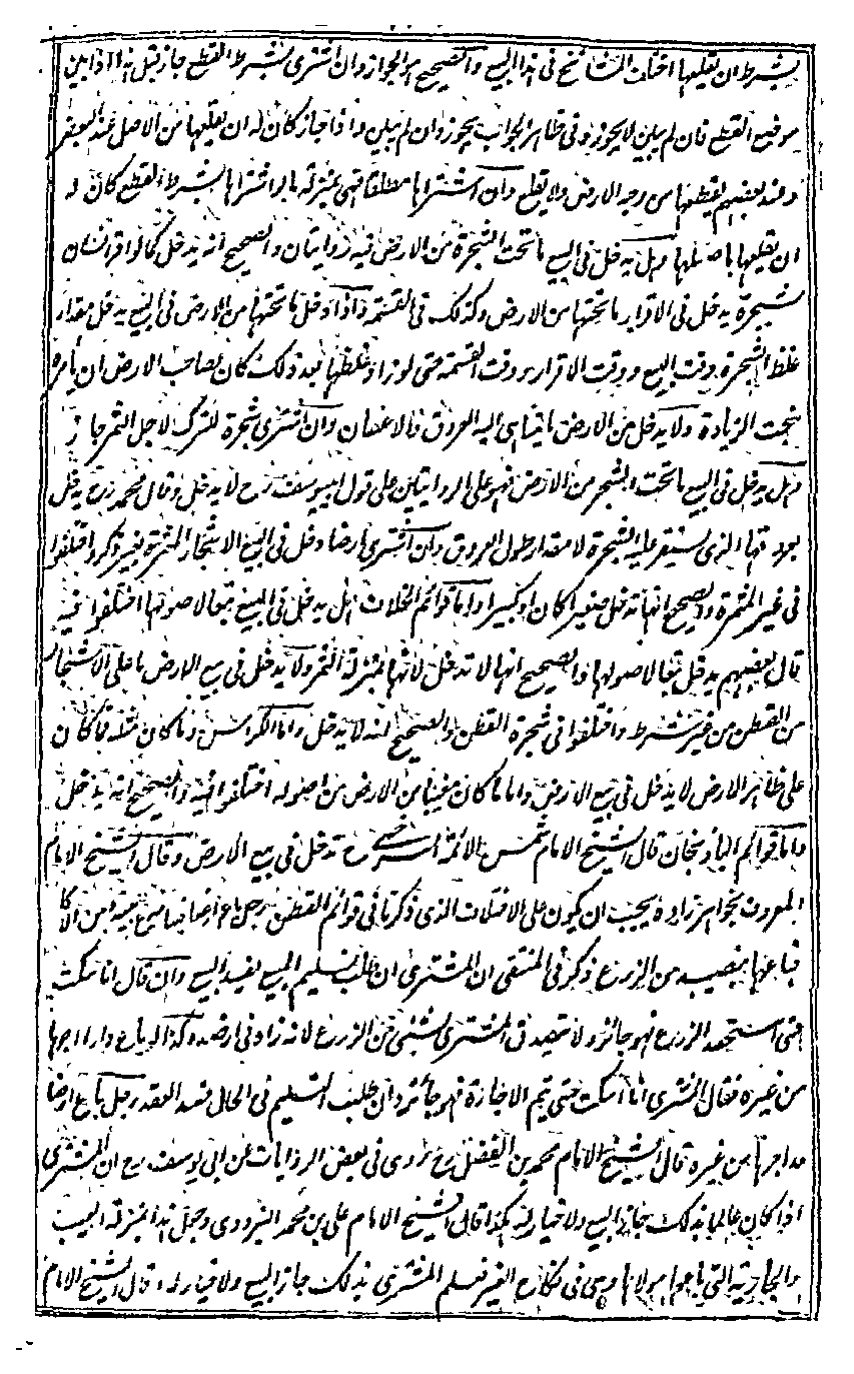 بشرط ان يقلعها اختلف المشائخ فى هذا البيع والصحيح هو الجواز وان اشترى بشرط القطع جاز قيل هذا اذا بين
موضع القطع فان لم يبين لا يجوز وفى ظاهر الجواب يجوز وان لم يبين واذا جاز كان له ان يقلعها من الاصل عند البعض
وعند بعضهم يقطعها من وجه الارض ولا يقلع وان اشتراها مطلقا فهى بمنزلة ما لو اشتراها بشرط القطع كان له
ان يقلعها باصلها وهل يدخل فى البيع ما تحت الشجرة من الارض فيه روايتان والصحيح انه يدخل كما لو اقر لانسان
بشجرة يدخل فى الاقرار ما تحتها من الارض وكذلك فى القسمة واذا دخل ما تحتها من الارض فى البيع يدخل مقدار
غلظ الشجرة وقت البيع ووقت الاقرار ووقت القسمة حتى لو زاد غلظها بعد ذلك كان لصاحب الارض ان يأمره
بنحت الزيادة ولا يدخل من الارض ما يتناهى اليه العروق والاغصان وان اشترى شجرة للترك لاجل الثمر جاز
وهل يدخل فى البيع ما تحت الشجر من الارض فهو على الروايتين على قول ابى يوسف رح لا يدخل وقال محمد رح يدخل
الذى يستقر عليه الشجرة لا مقدار طول العروق وان اشترى ارضا دخل فى البيع الاشجار المثمرة بغير ذكر واختلفوا
فى غير المثمرة والصحيح انها تدخل صغيرا كان او كبيرا واما قوائم الخلاف هل يدخل فى البيع تبعا لاصولها اختلفوا فيه
قال بعضهم يدخل تبعا لاصولها والصحيح انها لا تدخل لانها بمنزلة الثمر ولا يدخل فى بيع الارض ما على الاشجار
من القطن من غير شرط واختلفوا فى شجرة القطن والصحيح انه لا يدخل واما الكراث وما كان مثله فما كان
على ظاهر الارض لا يدخل فى بيع الارض واما ما كان مغيبا من الارض من اصوله اختلفوا فيه والصحيح انه يدخل
واما قوائم الباذنجان قال الشيخ الامام شمس الائمة السرخسى رح تدخل فى بيع الارض وقال الشيخ الامام
المعروف بخواهر زاده يجب ان يكون على الاختلاف الذى ذكرنا فى قوائم القطن رجل باع ارضا فيها زرع بينه وبين الاكار
فباعها بنصيبه من الزرع ذكر فى المنتقى ان المشترى ان طلب تسليم المبيع يفسد البيع وان قال انا اسكت
حتى استحصد الزرع فهو جائز ولا يتصدق المشترى بشئ من الزرع لانه زاد فى ارضه وكذا لو باع دارا اجرها
من غيره فقال المشترى انا اسكت حتى يتم الاجارة فهو جائز وان طلب التسليم فى الحال فسد العقد رجل باع ارضا
وآجرها من غيره قال الشيخ الامام محمد بن الفضل رح روى فى بعض الروايات عن ابى يوسف رح ان المشترى
اذا كان عالما بذلك جاز البيع ولا خيار له كذا قال الشيخ الامام على بن محمد البزدوى وجعل هذا بمنزلة العيب
والجارية التى باعها مولاها وهى فى نكاح الغير فعلم المشترى بذلك جاز البيع ولا خيار له وقال الشيخ الامام